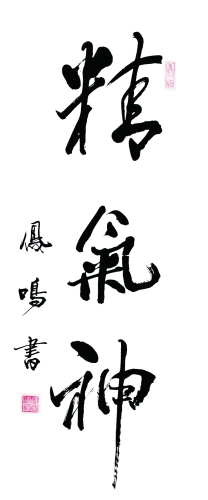 精氣神
鳳鳴書